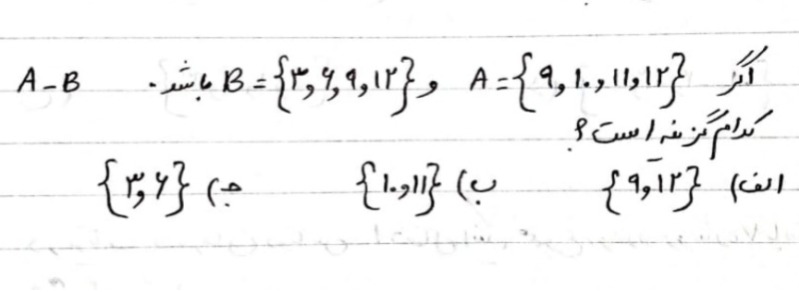 اگر A = {۹, ۱۰, ۱۱, ۱۲} و B = {۳, ۶, ۹, ۱۲} باشد. A - B
کدام گزینه است؟
الف) {۹, ۱۲} ب) {۱۰, ۱۱} ج) {۳, ۶}